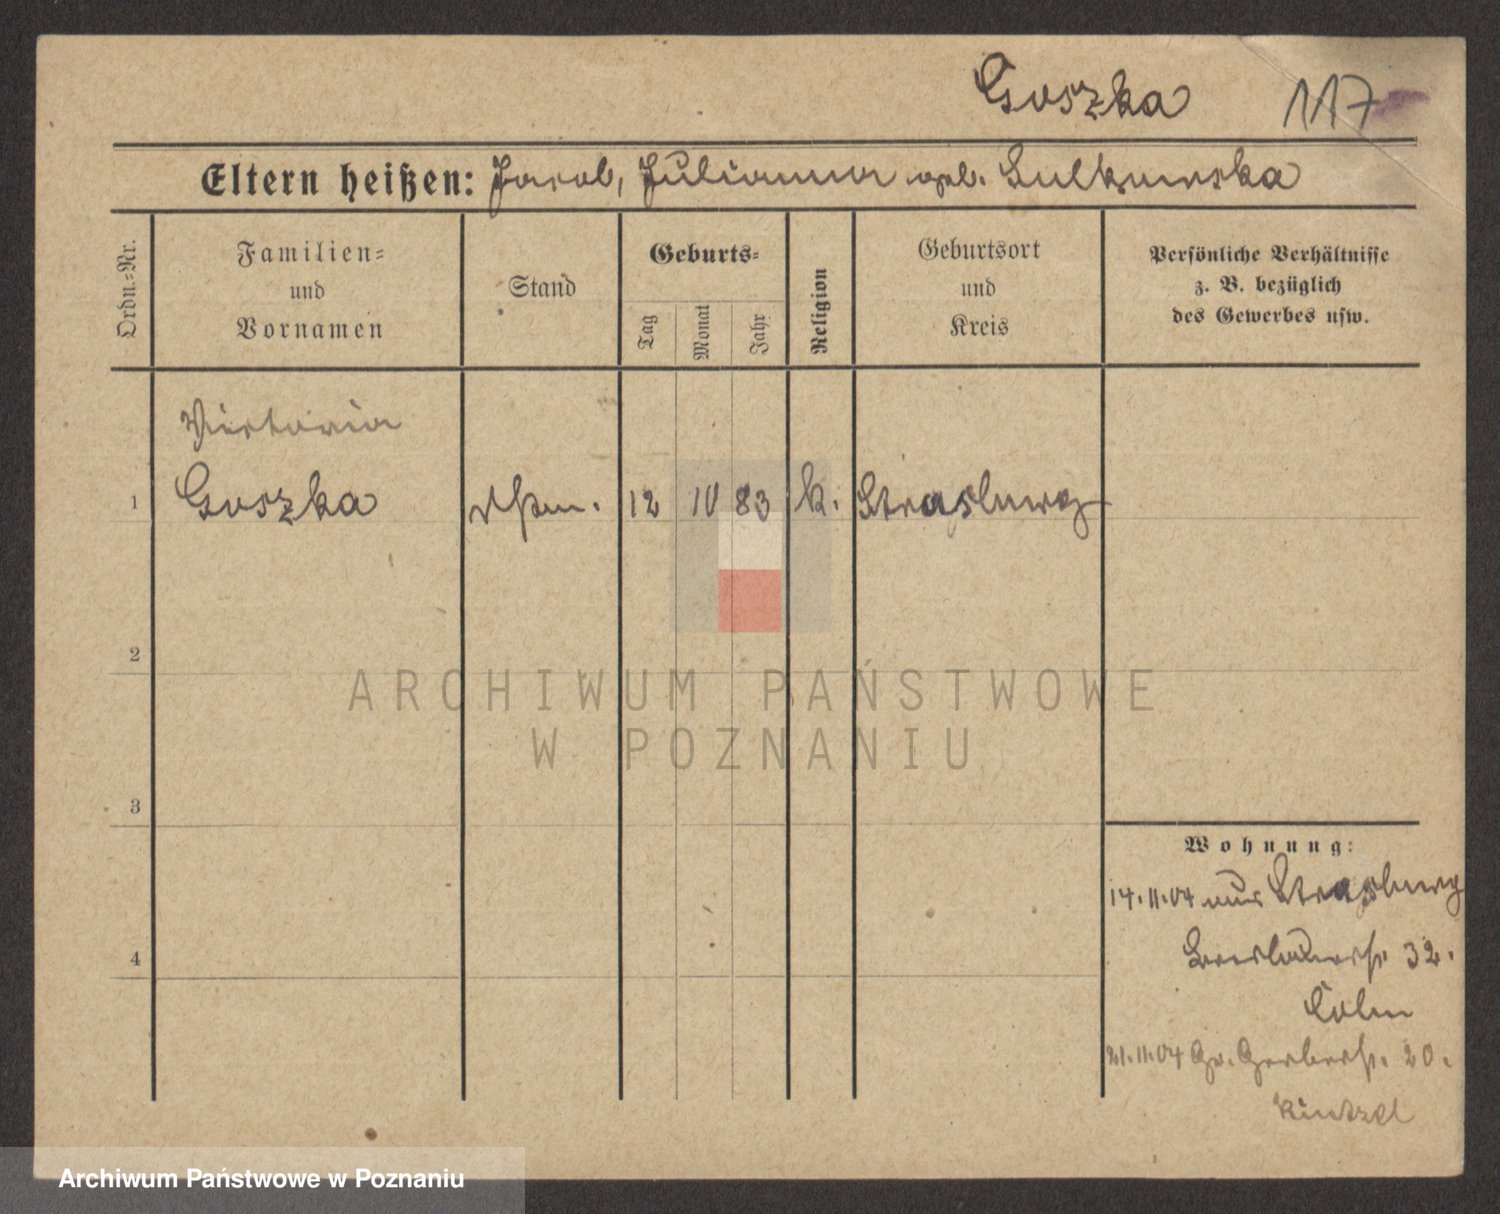 Goszka 117
Eltern heißen: Jacob, Julianna geb. Sulkowska
Ordn.-Nr.
Familien-
und
Vornamen
Stand
Geburts-
Tag
Monat
Jahr
Religion
Geburtsort
und
Kreis
Persönliche Verhältnisse
z. B. bezüglich
des Gewerbes usw.
Victoria
1 Goszka 12 10 83 k. Strasburg
2
3
4
Wohnung:
14.11.04 aus Strasburg
Breslauerstr. 32.
Cohn
21.11.04 Gr. Gerberstr. 20.
Kintzel
ARCHIWUM PAŃSTWOWE
W POZNANIU
Archiwum Państwowe w Poznaniu